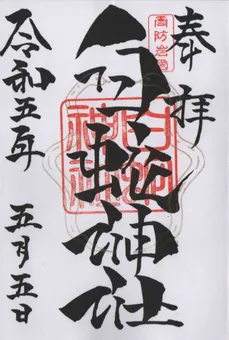 奉拝
周防岩国
白蛇神社
令和五年
五月五日